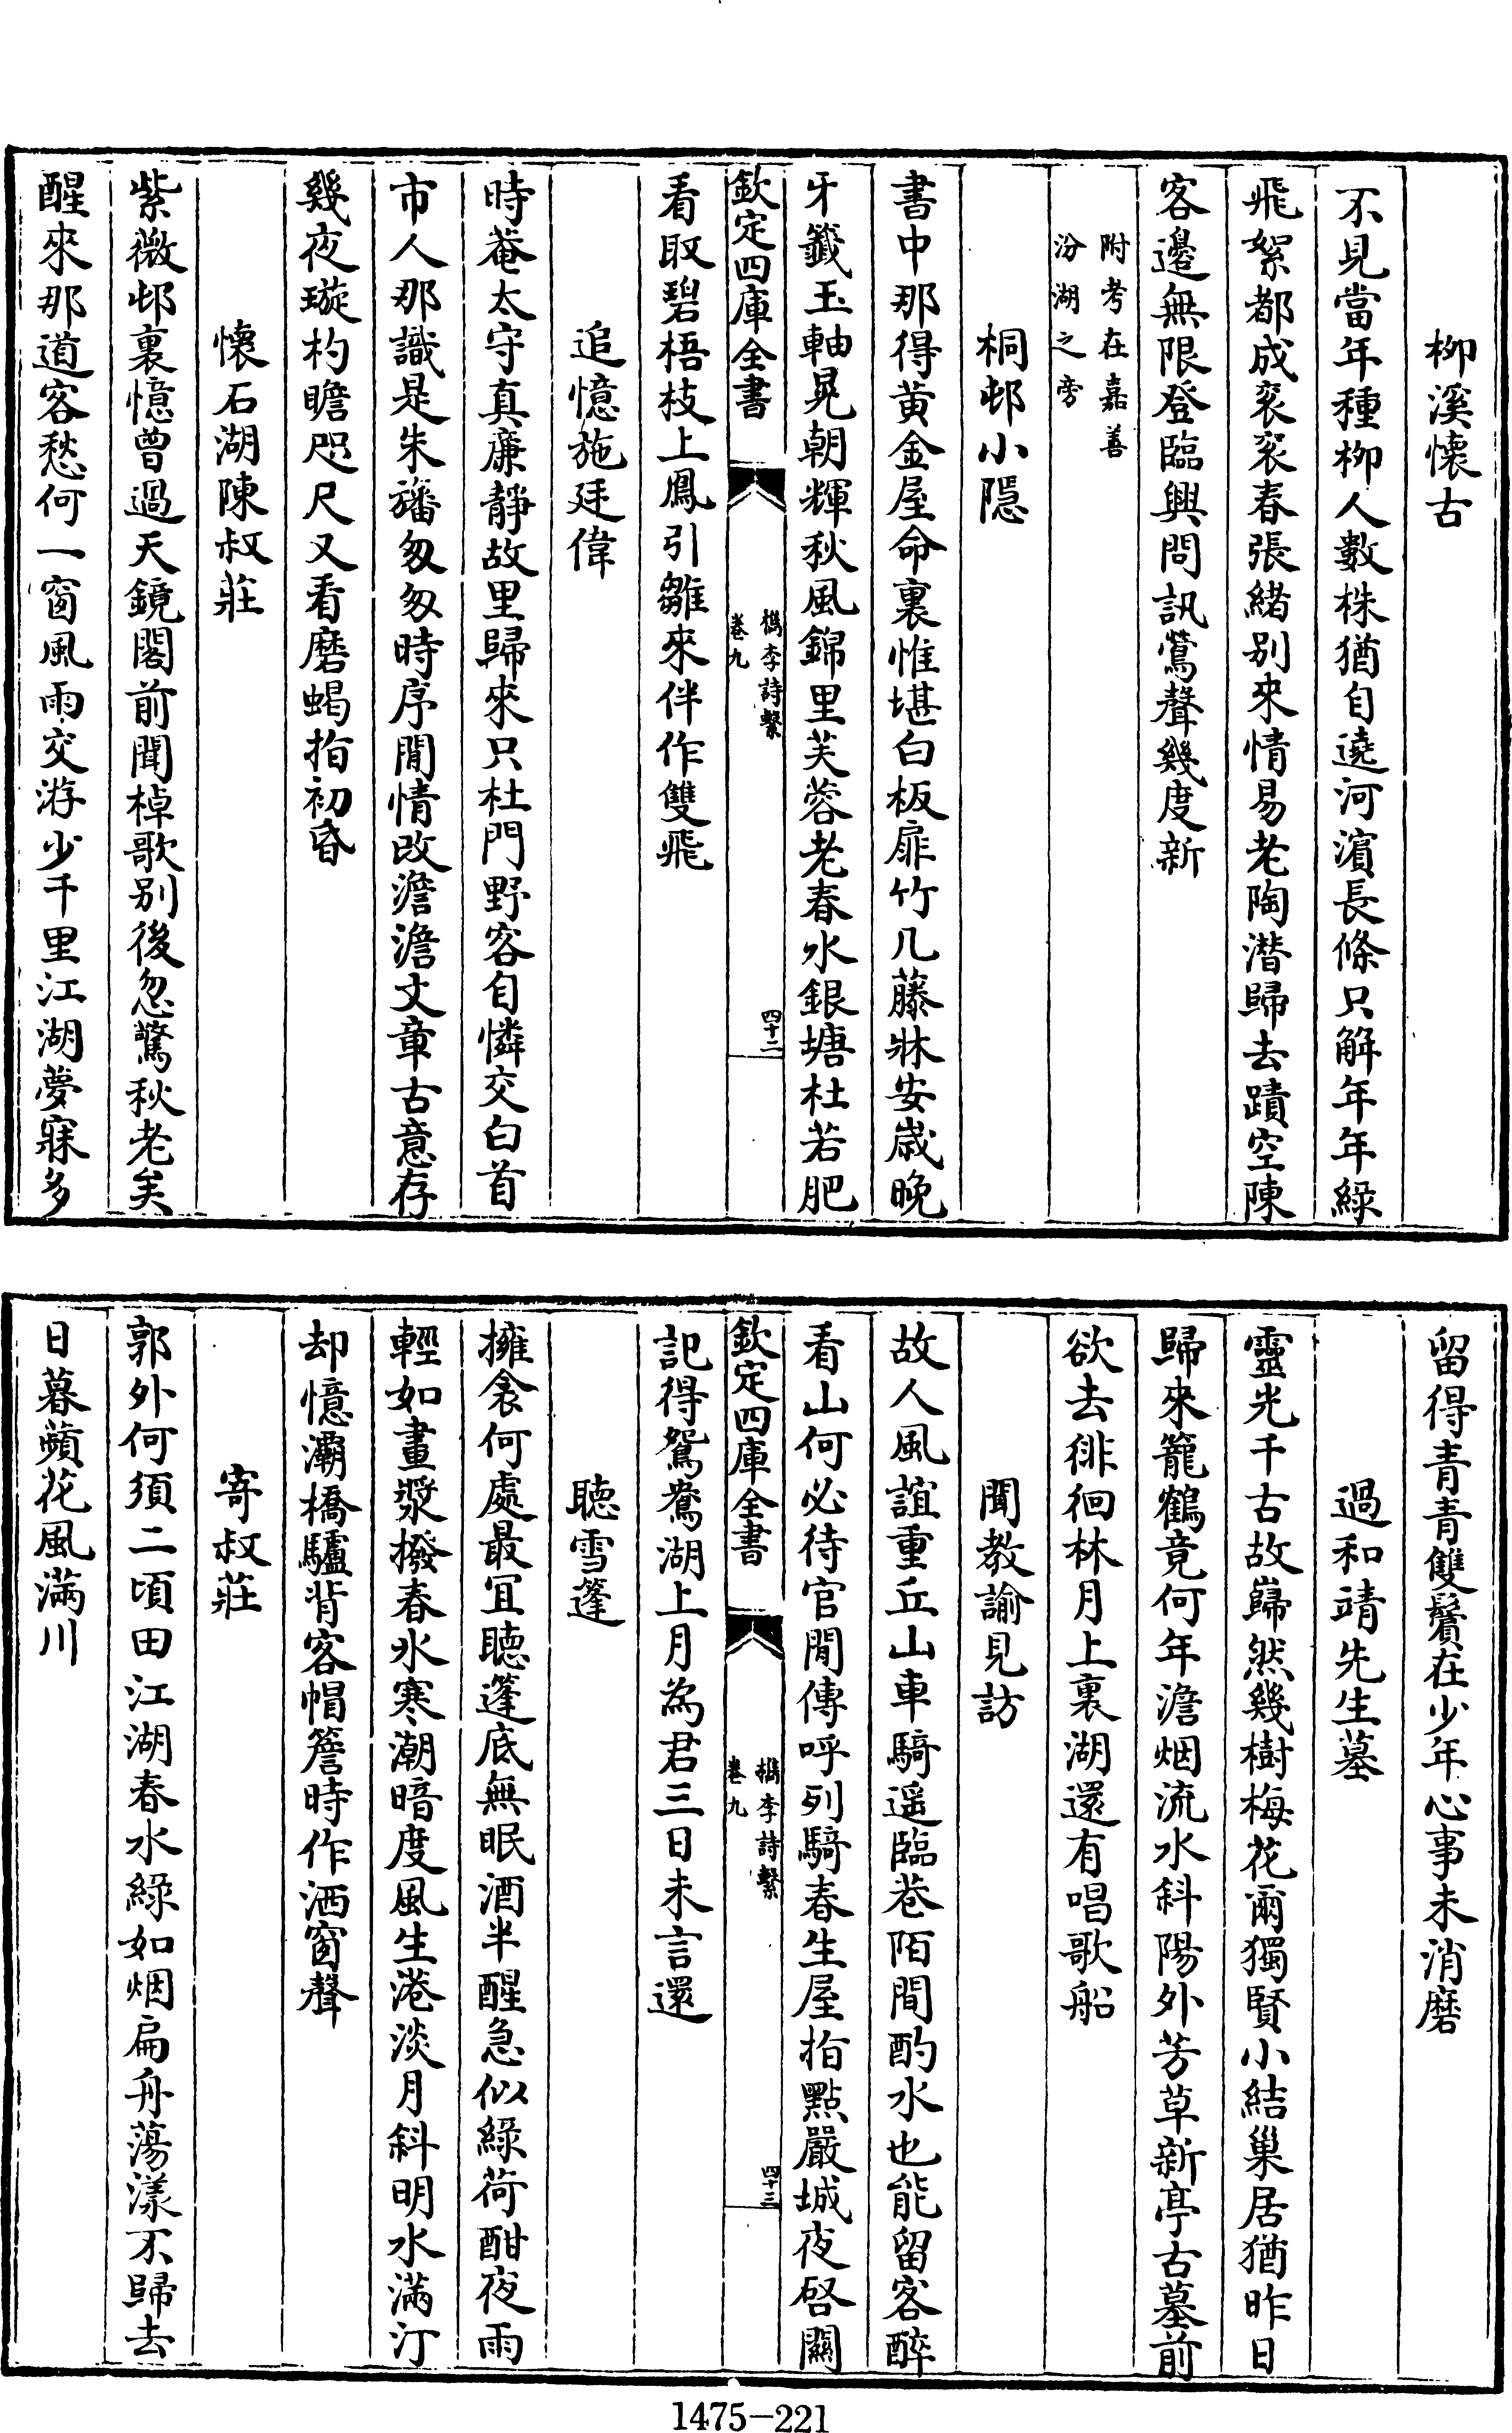 柳溪懷古
不見當年種柳人數株猶自遶河濵長條只解年年綠
飛絮都成衮衮春張緒别來情易老陶潛歸去蹟空陳
客邉無限登臨興問訊鶯聲幾度新
附考在嘉善
汾湖之旁
桐邨小隠
書中那得黄金屋命裏惟堪白板扉竹几藤牀安嵗晚
牙籤玉軸晃朝輝秋風錦里芙蓉老春水銀塘杜若肥
欽定四庫全書
檇李詩繫
卷九
四十二
看取碧梧枝上鳳引雛來伴作雙飛
追憶施廷偉
時菴太守真廉靜故里歸來只杜門野客自憐交白首
市人那識是朱旛匆匆時序閒情改澹澹文章古意存
幾夜璇杓瞻咫尺又看磨蝎指初昏
懷石湖陳叔莊
紫薇邨裏憶曾過天鏡閣前聞棹歌别後忽驚秋老矣
醒來那道客愁何一窗風雨交游少千里江湖夢寐多
留得青青雙鬢在少年心事未消磨
過和靖先生墓
靈光千古故巋然幾樹梅花爾獨賢小結巢居猶昨日
歸來籠鶴竟何年澹烟流水斜陽外芳草新亭古墓前
欲去徘徊林月上裏湖還有唱歌船
聞教諭見訪
故人風誼重丘山車騎遥臨巷陌間酌水也能留客醉
看山何必待官閒傳呼列騎春生屋指點嚴城夜啓關
欽定四庫全書
檇李詩繫
卷九
四十三
記得鴛鴦湖上月為君三日未言還
聴雪篷
擁衾何處最冝聴篷底無眠酒半醒急似綠荷酣夜雨
輕如畫漿撥春氷寒潮暗度風生港淡月斜明水滿汀
却憶灞橋驢背客帽簷時作洒窗聲
寄叔莊
郭外何須二頃田江湖春水綠如烟扁舟蕩漾不歸去
日暮蘋花風滿川
1475-221